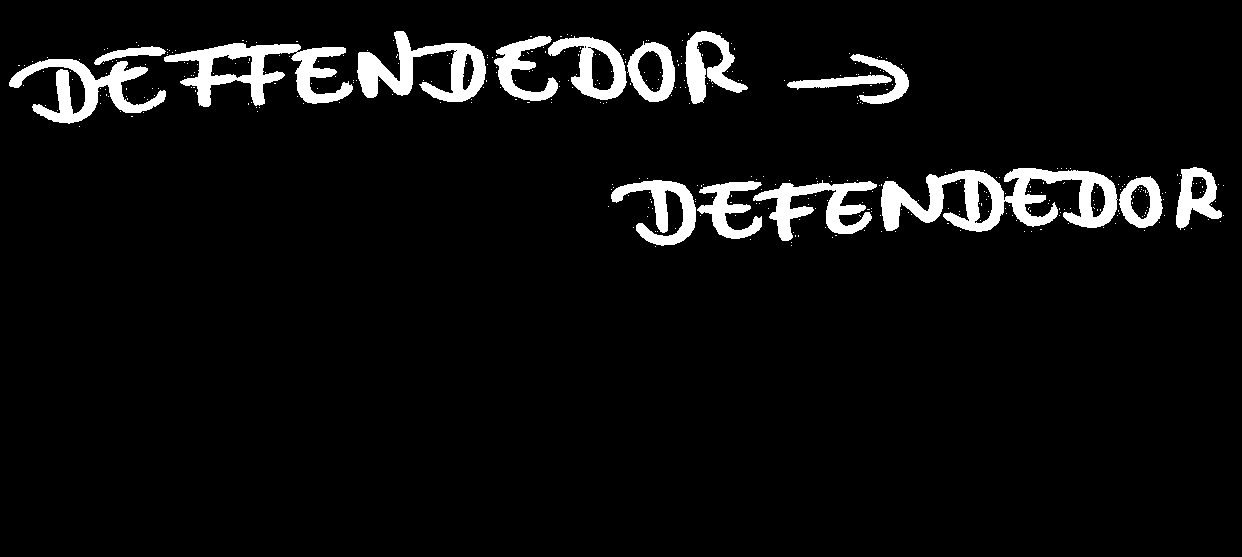 DEFFENDEDOR →
DEFENDEDOR